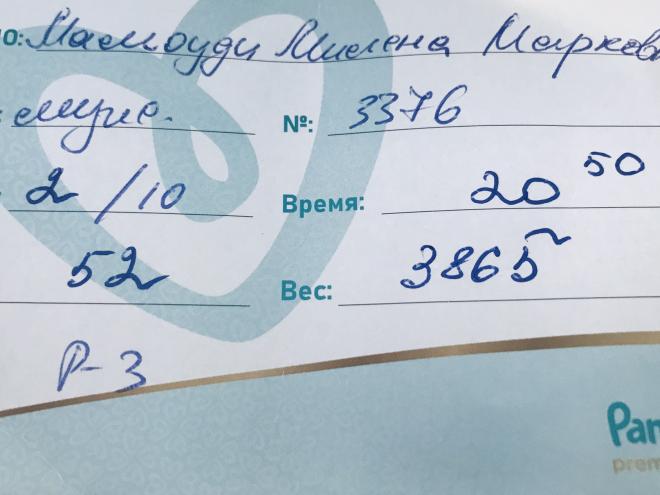 ИО: Мамоуди Милена Марков
муж. №: 3376
2/10 Время: 20 50
52 Вес: 3865
Р-3
Pam
prem